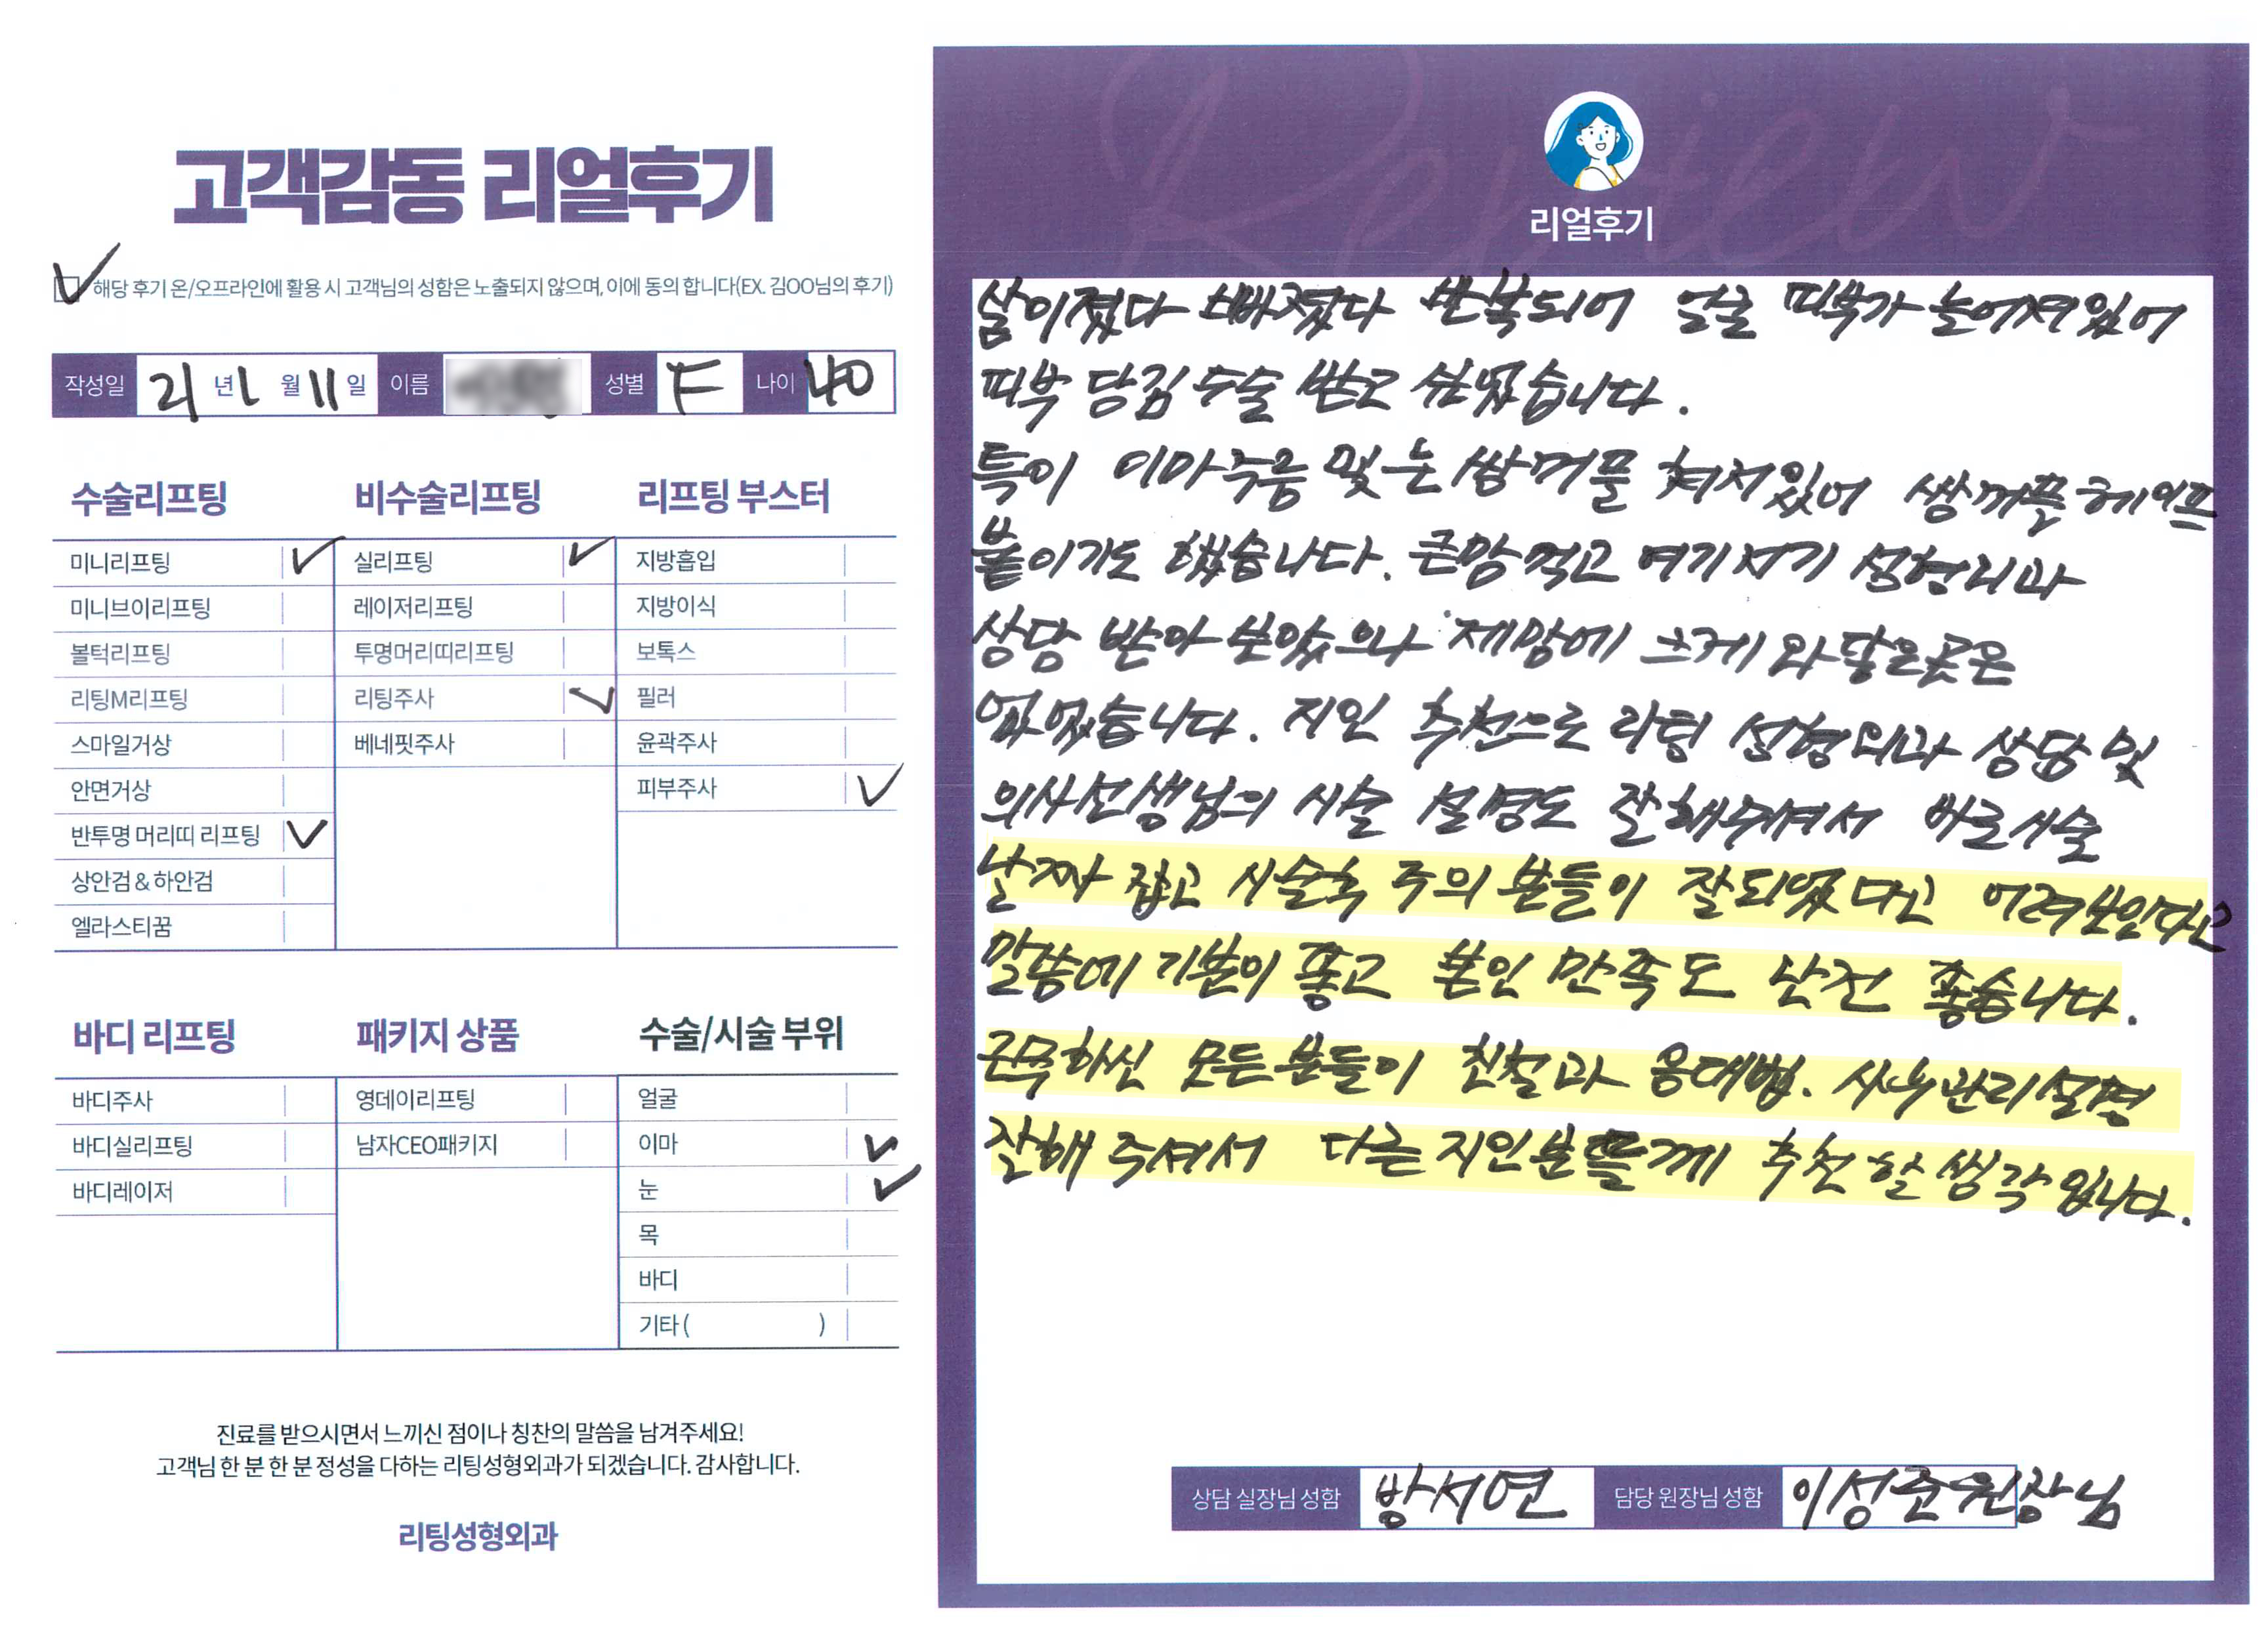 고객감동 리얼후기
해당 후기 온/오프라인에 활용 시 고객님의 성함은 노출되지 않으며, 이에 동의 합니다(EX. 김OO님의 후기)
작성일 21 년 1 월 11 일 이름 성별 F 나이 40
수술리프팅 비수술리프팅 리프팅 부스터
미니리프팅 실리프팅 지방흡입
미니브이리프팅 레이저리프팅 지방이식
볼턱리프팅 투명머리띠리프팅 보톡스
리팅M리프팅 리팅주사 필러
스마일거상 베네핏주사 윤곽주사
안면거상 피부주사
반투명 머리띠 리프팅
상안검 & 하안검
엘라스티꿈
바디 리프팅 패키지 상품 수술/시술 부위
바디주사 영데이리프팅 얼굴
바디실리프팅 남자CEO패키지 이마
바디레이저 눈
목
바디
기타 ( )
진료를 받으시면서 느끼신 점이나 칭찬의 말씀을 남겨주세요!
고객님 한 분 한 분 정성을 다하는 리팅성형외과가 되겠습니다. 감사합니다.
리팅성형외과
Review
리얼후기
살이졌다 빠졌다 반복되어 얼굴 피부가 늘어져있어
피부 당김 수술 받고 싶었습니다.
특이 이마주름 및 눈 쌍꺼풀 쳐저있어 쌍꺼플테이프
붙이기도 했습니다. 큰맘먹고 여기저기 성형외과
상담 받아 보았으나 제맘에 크게 와닿은곳은
없었습니다. 지인 추천으로 리팅 성형외과 상담 및
의사선생님의 시술 설명도 잘해주셔서 바로시술
날짜 잡고 시술후 주의 분들이 잘되었다고 어려보인다는
말씀에 기분이 좋고 본인 만족도 완전 좋습니다.
근무하신 모든분들이 친절과 응대법. 사후관리설명
잘해 주셔서 다른 지인분들께 추천할 생각입니다.
상담 실장님 성함 방서연 담당 원장님 성함 이성준원장님